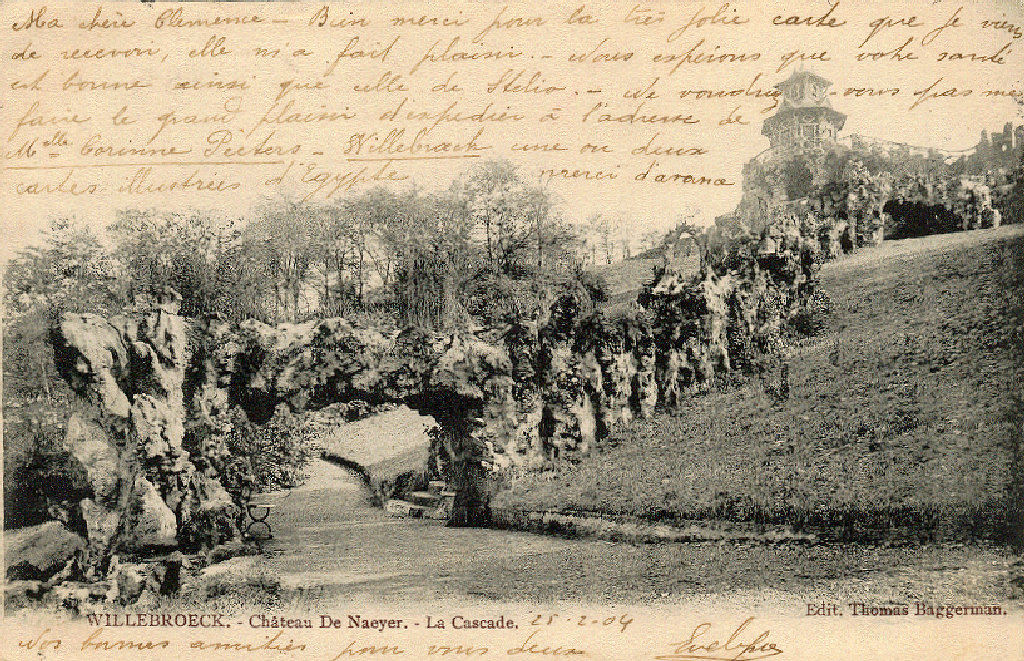 Ma chère Clemence - Bien merci pour la très jolie carte que je viens
de recevoir, elle m'a fait plaisir. - Nous espérons que votre santé
est bonne ainsi que celle de Stelio. - Ne voudriez-vous pas me
faire le grand plaisir d'expédier à l'adresse de
Melle Corinne Peeters - Willebroeck une ou deux
cartes illustrées d'Egypte merci d'avance
WILLEBROECK. - Château De Naeyer. - La Cascade. 25-2-04
Edit. Thomas Baggerman.
Nos bonnes amitiés pour vous deux